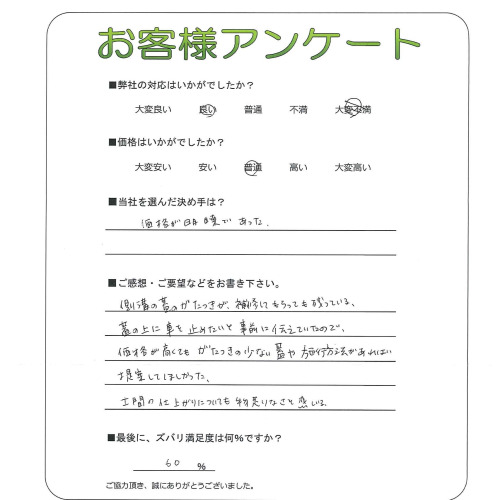 お客様アンケート
■弊社の対応はいかがでしたか？
大変良い 良い 普通 不満 大変不満
■価格はいかがでしたか？
大変安い 安い 普通 高い 大変高い
■当社を選んだ決め手は？
価格が明瞭であった.
■ご感想・ご要望などをお書き下さい。
側溝の蓋のがたつきが、補修してもらっても残っている、
蓋の上に車を止めたいと事前に伝えていたので、
価格が高くても がたつきの少ない蓋や施行方法があれば
提案してほしかった、
土間の仕上がりについても物足りなさを感いる.
■最後に、ズバリ満足度は何%ですか？
60 %
ご協力頂き、誠にありがとうございました。